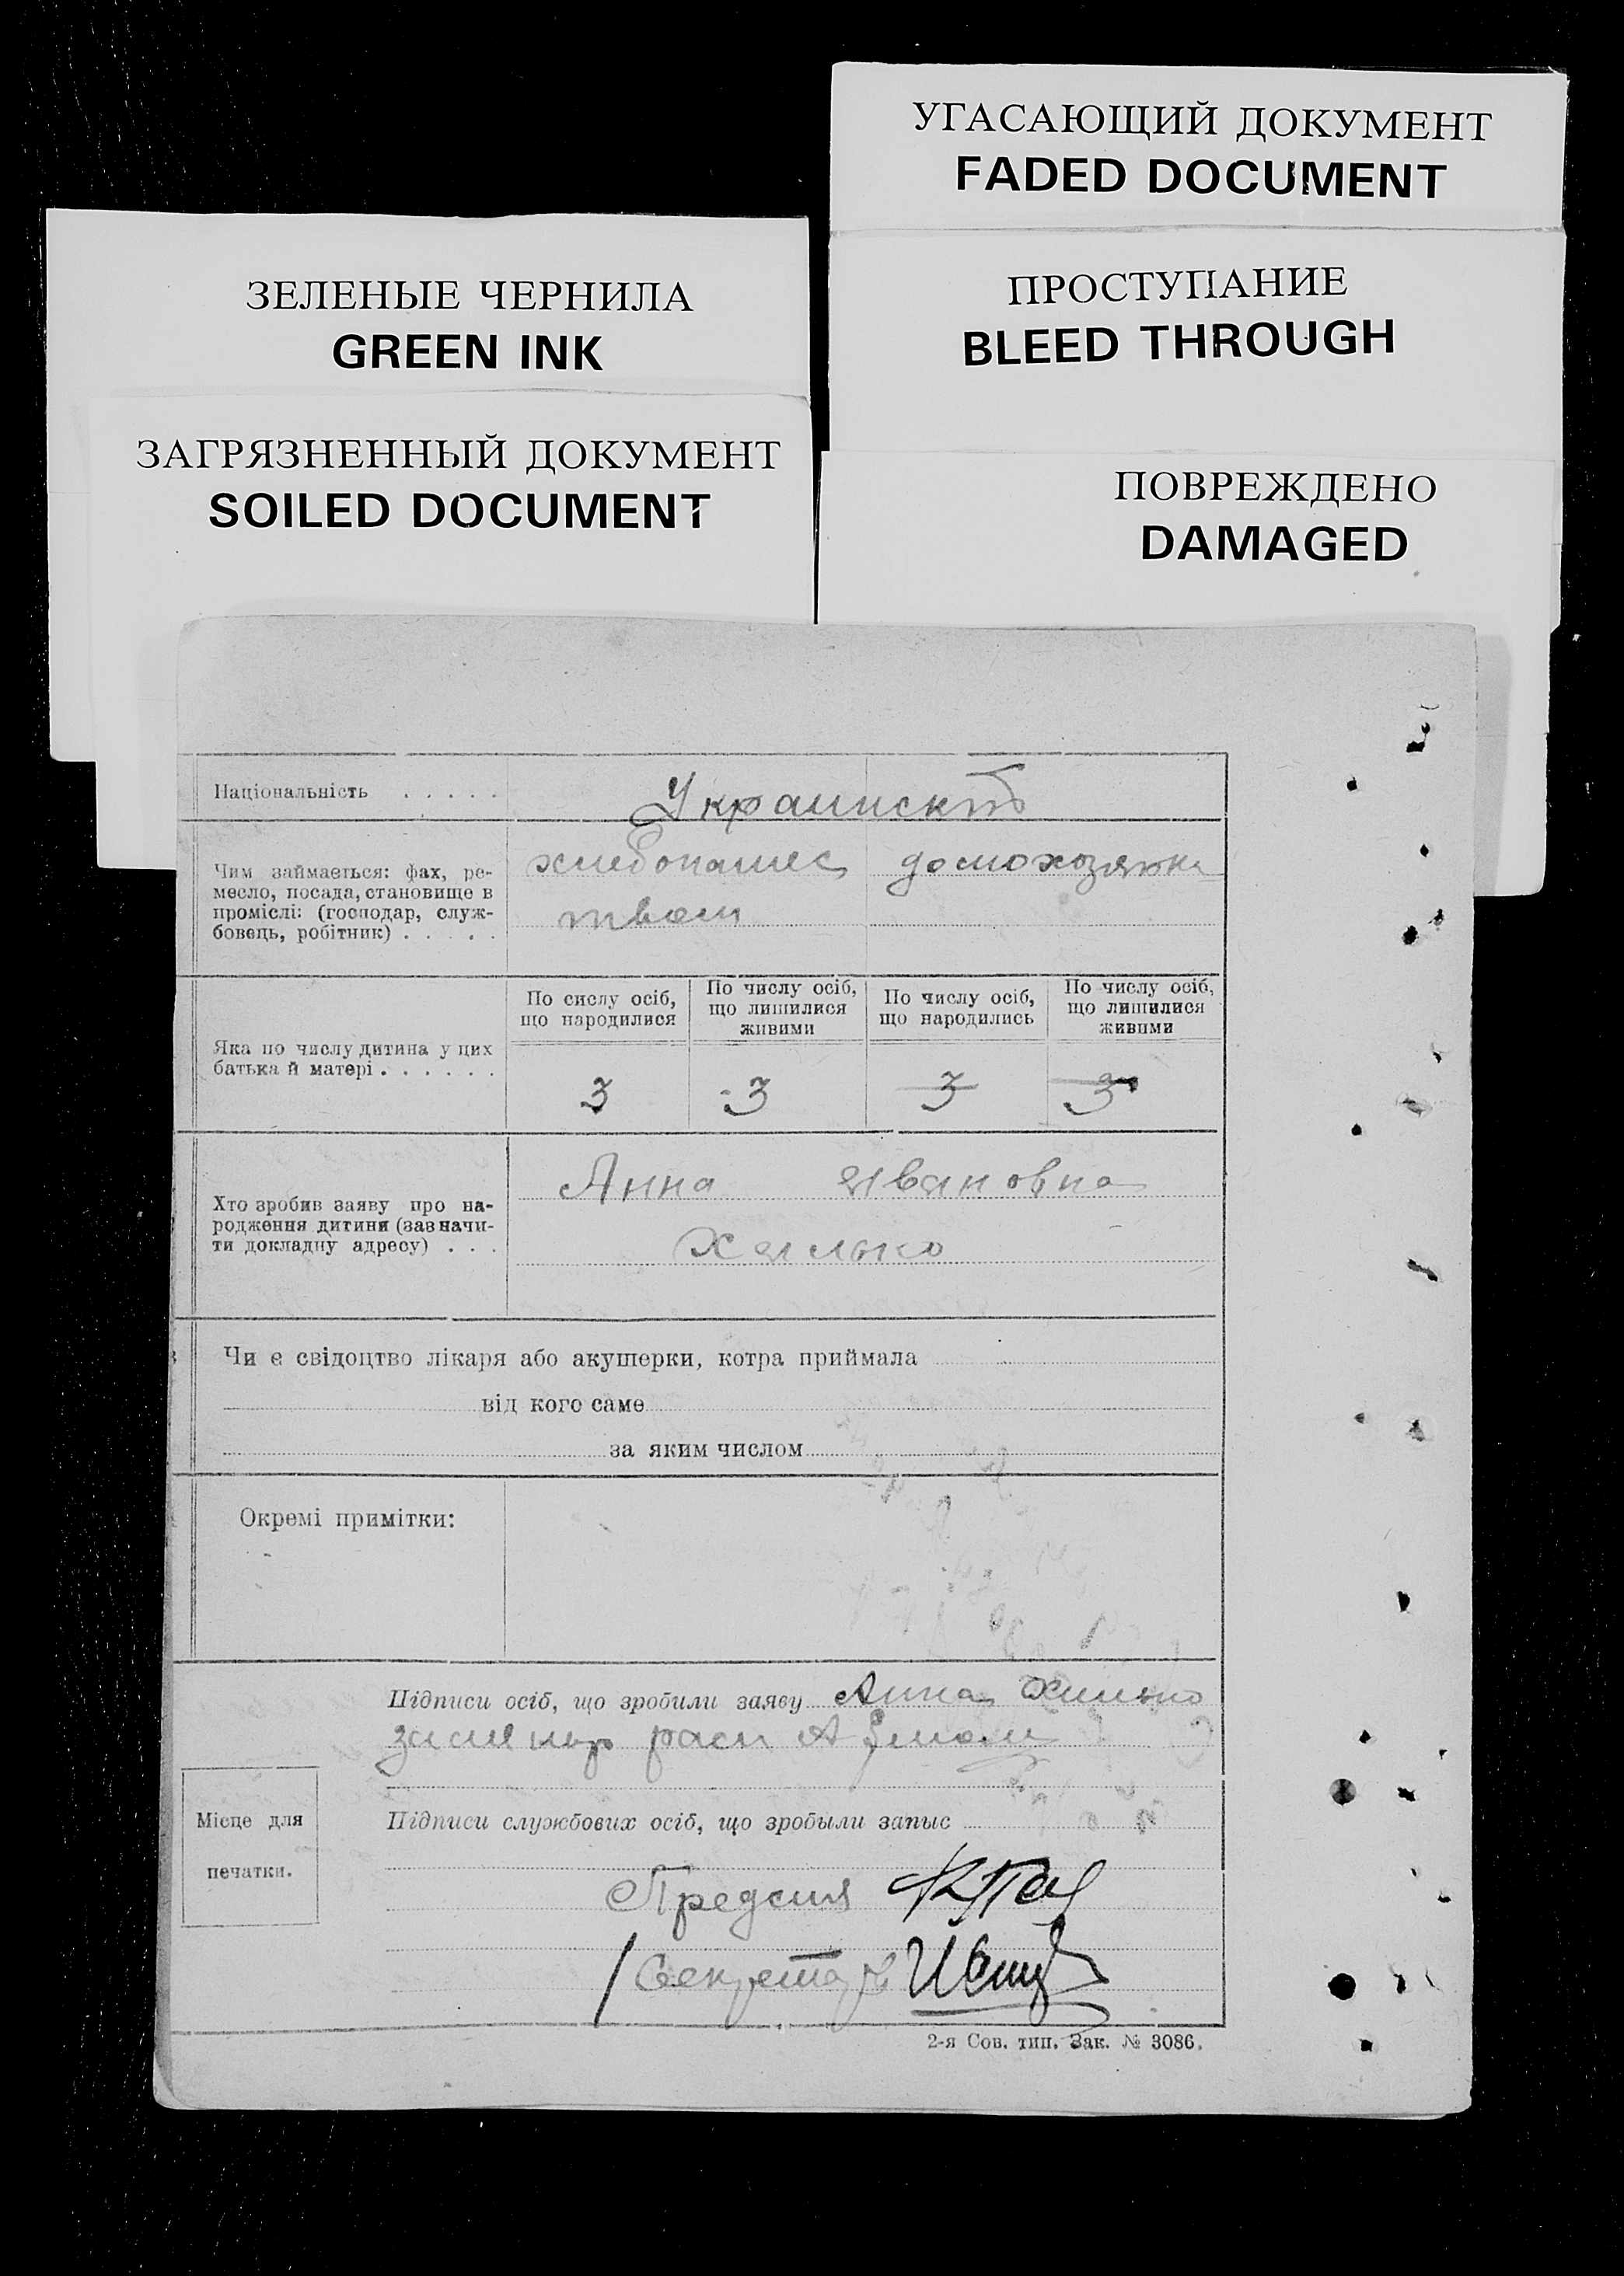 УГАСАЮЩИЙ ДОКУМЕНТ
FADED DOCUMENT
ПРОСТУПАНИЕ
BLEED THROUGH
ЗЕЛЕНЫЕ ЧЕРНИЛА
GREEN INK
ЗАГРЯЗНЕННЫЙ ДОКУМЕНТ
SOILED DOCUMENT
ПОВРЕЖДЕНО
DAMAGED
Національність . . . . .
Чим займається: фах, ре-
месло, посада, становище в
проміслі: (господар, служ-
бовець, робітник) . . . . .
хлебопашес домохозяйка
твом
По сислу осіб,
що народилися
По числу осіб,
що лишилися
живими
По числу осіб,
що народились
По числу осіб,
що лишилися
живими
Яка по числу дитина у цих
батька й матері . . . . . .
3 3 3 3
Хто зробив заяву про на-
родження дитини (зазначи-
ти докладну адресу) . . .
Анна Ивановна
Халько
Чи є свідоцтво лікаря або акушерки, котра приймала
від кого саме
за яким числом
Окремі примітки:
Підписи осіб, що зробили заяву Анна
Місце для
печатки.
Підписи службових осіб, що зробыли запыс
Секретарь
2-я Сов. тип. Зак. № 3086.